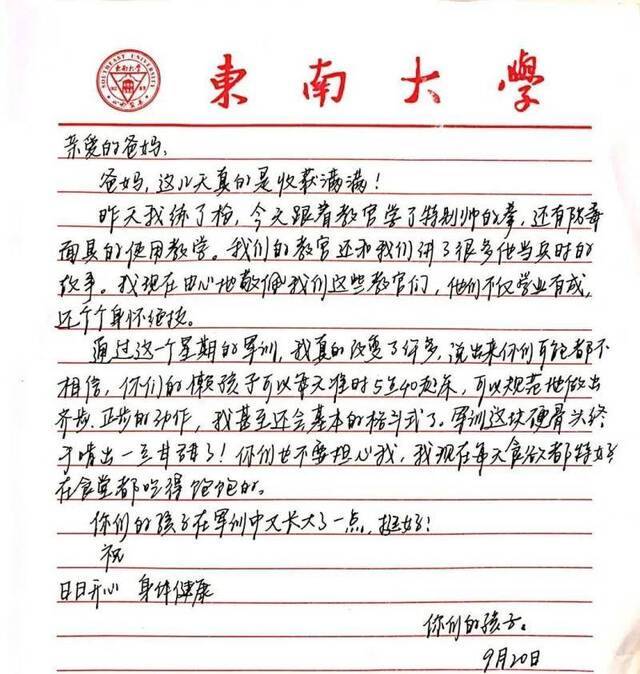 東南大學
SOUTHEAST UNIVERSITY
亲爱的爸妈，
爸妈，这几天真的是收获满满！
昨天我练了枪，今天跟着教官学了特别帅的拳，还有防毒
面具的使用教学。我们的教官还和我们讲了很多他当兵时的
故事。我现在由心地敬佩我们这些教官们，他们不仅学业有成，
还个个身怀绝技。
通过这一个星期的军训，我真的改变了许多，说出来你们可能都不
相信，你们的懒孩子可以每天准时5点40起床，可以规范地做出
齐步、正步的动作，我甚至还会基本的格斗式了。军训这块硬骨头终
于啃出一些甜头了！你们也不要担心我，我现在每天食欲都特好
在食堂都吃得饱饱的。
你们的孩子在军训中又长大了一点，挺好！
祝
日日开心 身体健康
你们的孩子。
9月20日